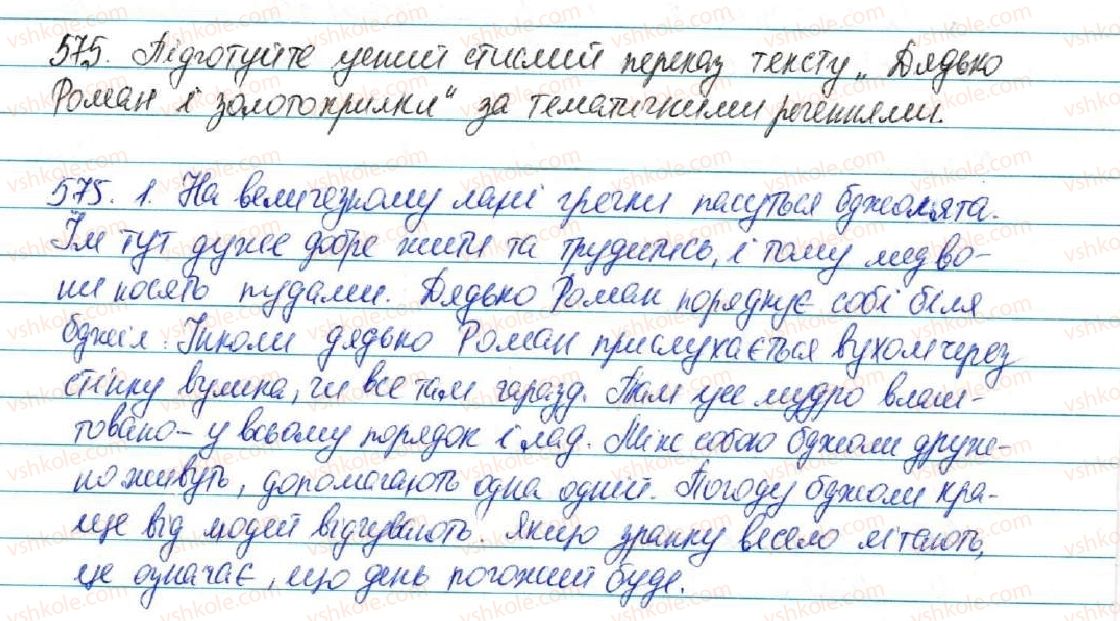 575. Підготуйте усний стислий переказ тексту „Дядько
Роман і золотокрилки“ за тематичними реченнями.
575. 1. На величезному лані гречки пасуться бджолята.
Їм тут дуже добре жити та трудитись, і тому мед во-
ни носять пудами. Дядько Роман порядкує собі біля
бджіл. Інколи дядько Роман прислухається вухом через
стінку вулика, чи все там гаразд. Там усе мудро влаш-
товано - у всьому порядок і лад. Між собою бджоли друж-
но живуть, допомагають одна одній. Погоду бджоли кра-
ще від людей відчувають. Якщо зранку весело літають,
це означає, що день погожий буде.